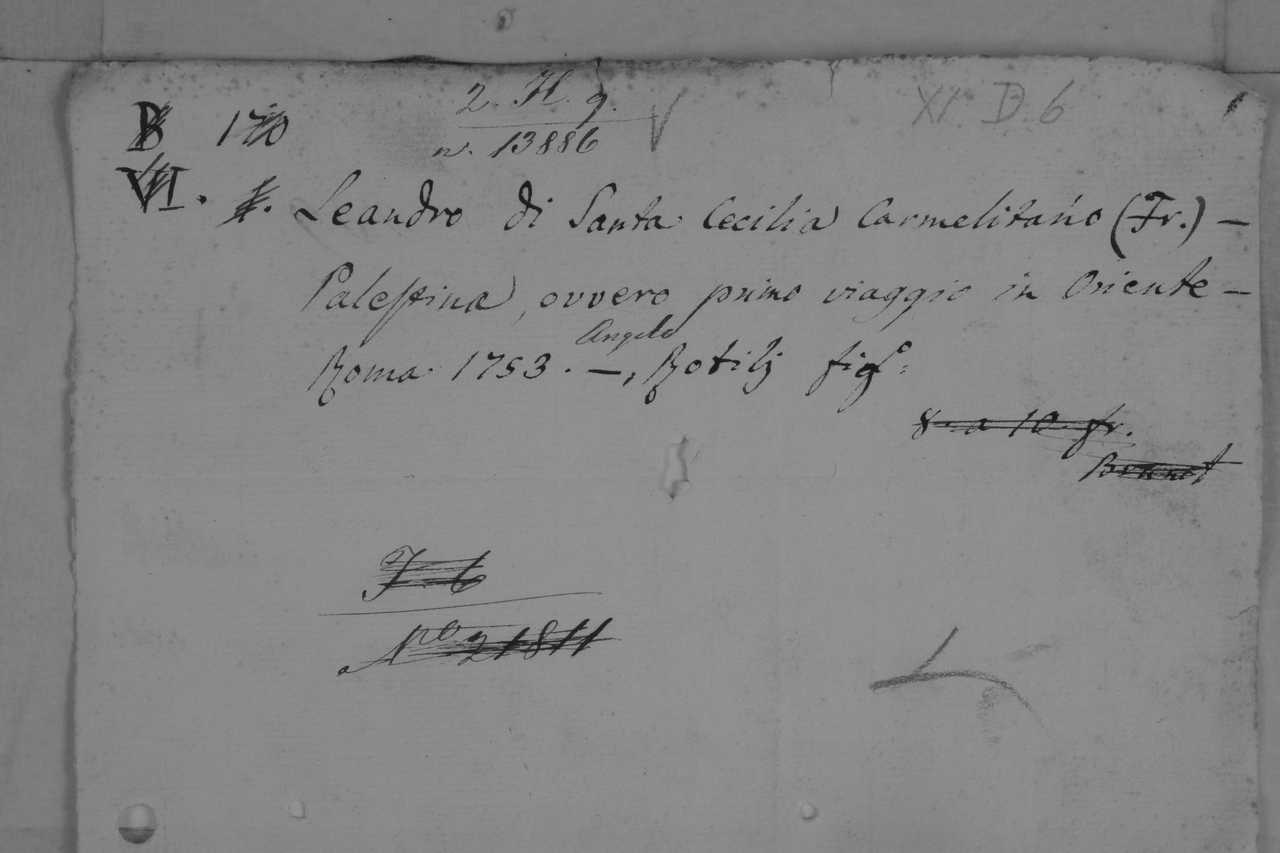 2. H. 9. XI. D. 6
B 170
n. 13886
VI. Leandro di Santa Cecilia Carmelitano (Fr.) —
Palestina, ovvero primo viaggio in Oriente —
Angelo
Roma. 1753. —, Rotilj fig.º
8 a 10 fr.
Brunet
F 6
Nº 21811